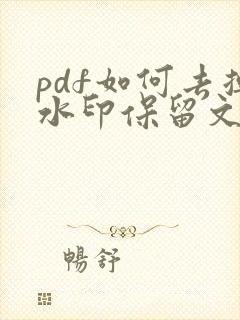 pdf如何去掉
水印保留文
暢舒